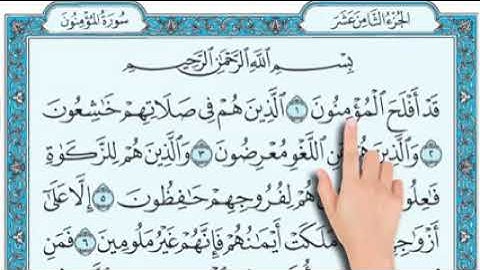 الجُزْءُ الثَّامِنَ عَشَرَ
سُورَةُ المُؤْمِنُونَ
بِسْمِ ٱللَّهِ ٱلرَّحْمَٰنِ ٱلرَّحِيمِ
قَدْ أَفْلَحَ ٱلْمُؤْمِنُونَ ١ ٱلَّذِينَ هُمْ فِى صَلَاتِهِمْ خَٰشِعُونَ
٢ وَٱلَّذِينَ ٱللَّغْوِ مُعْرِضُونَ ٣ وَٱلَّذِينَ هُمْ لِلزَّكَوٰةِ
هُمْ لِفُرُوجِهِمْ حَٰفِظُونَ ٥ إِلَّا عَلَىٰٓ
مَلَكَتْ أَيْمَٰنُهُمْ فَإِنَّهُمْ غَيْرُ مَلُومِينَ ٦ فَمَنِ